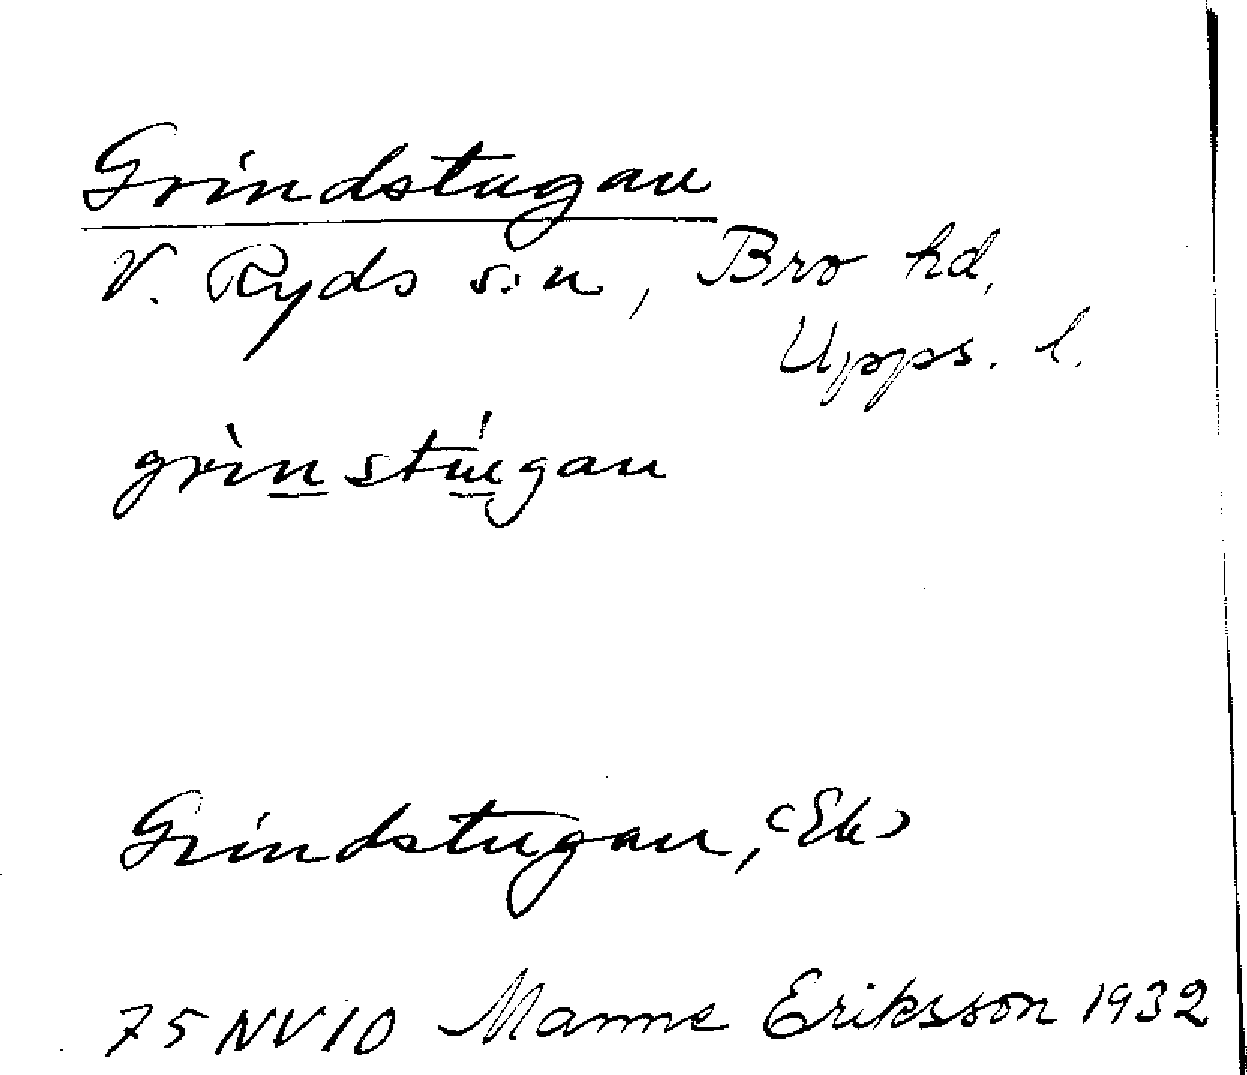 Grindstugan
V. Ryds s:n, Bro hd,
Upps. l.
grìnstúgan
Grindstugan, (Ek)
75 NV 10 Manne Eriksson 1932